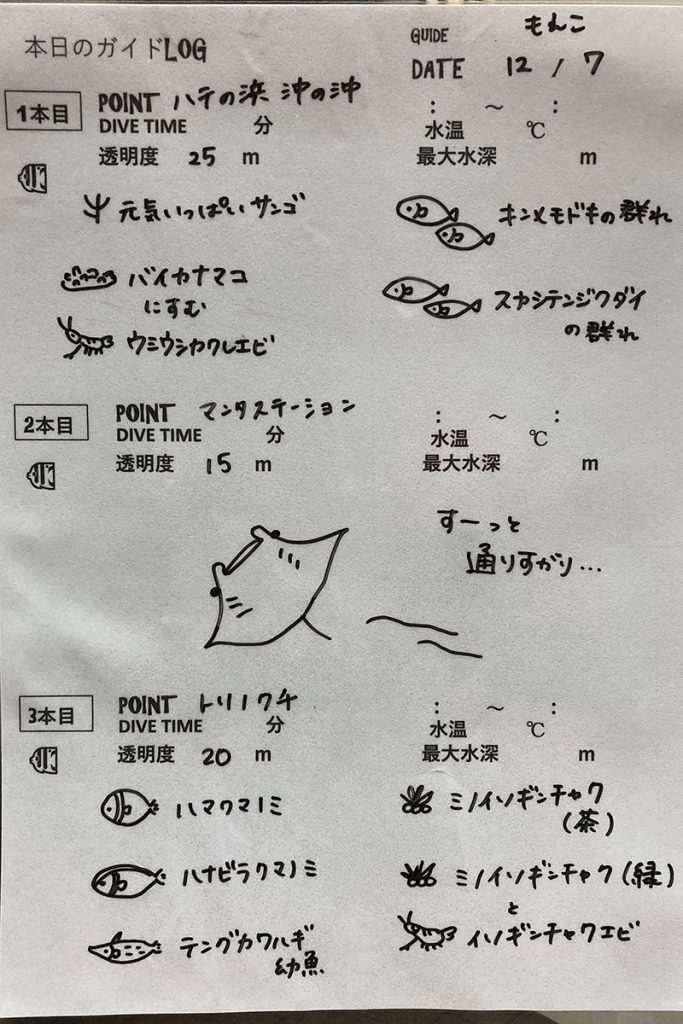 本日のガイドLOG
GUIDE もえこ
DATE 12 / 7
1本目 POINT ハテの浜 沖の沖
DIVE TIME 分 : ～ :
水温 ℃
透明度 25 m 最大水深 m
元気いっぱいサンゴ
キンメモドキの群れ
バイカナマコ
にすむ
ウミウシカクレエビ
スカシテンジクダイ
の群れ
2本目 POINT マンタステーション
DIVE TIME 分 : ～ :
水温 ℃
透明度 15 m 最大水深 m
すーっと
通りすがり...
3本目 POINT トリノクチ
DIVE TIME 分 : ～ :
水温 ℃
透明度 20 m 最大水深 m
ハマクマノミ
ミノイソギンチャク
(茶)
ハナビラクマノミ
ミノイソギンチャク(緑)
と
イソギンチャクエビ
テングカワハギ
幼魚